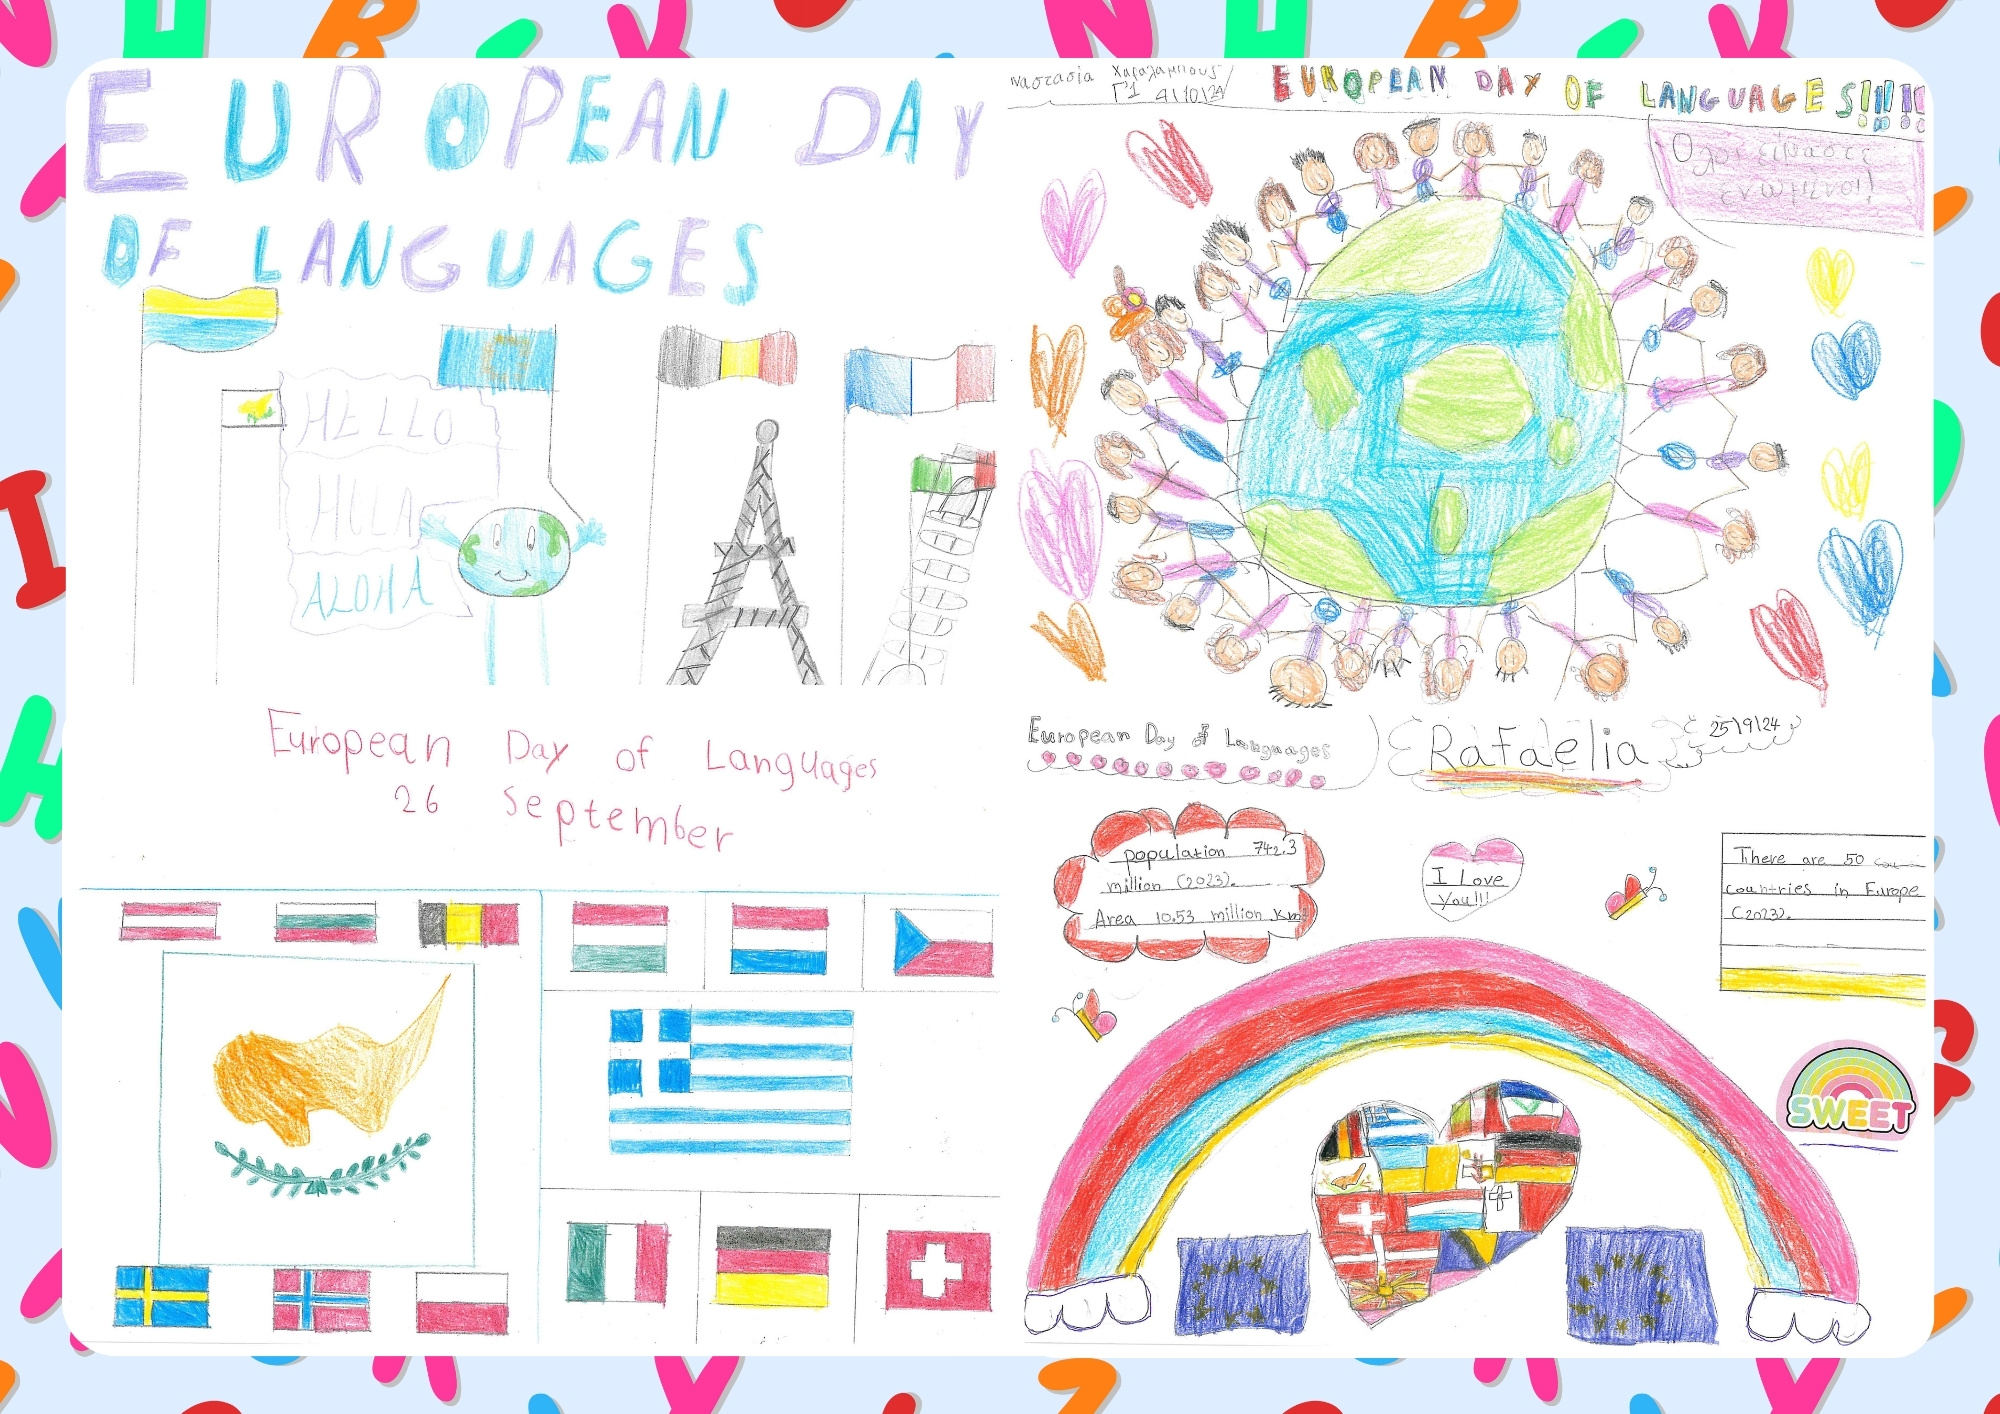 EUROPEAN DAY
OF LANGUAGES
HELLO
HULA
ALOHA
ναστασία Χαραλάμπους
Γ'1 4/10/24
EUROPEAN DAY OF LANGUAGES!!!!
Όλοι είμαστε
ενωμένοι!
European Day of Languages
26 September
European Day of Languages
Rafaelia
25/9/24
population 742.3
million (2023).
Area 10.53 million km²
I Love
You!!!
There are 50
countries in Europe
(2023).
SWEET